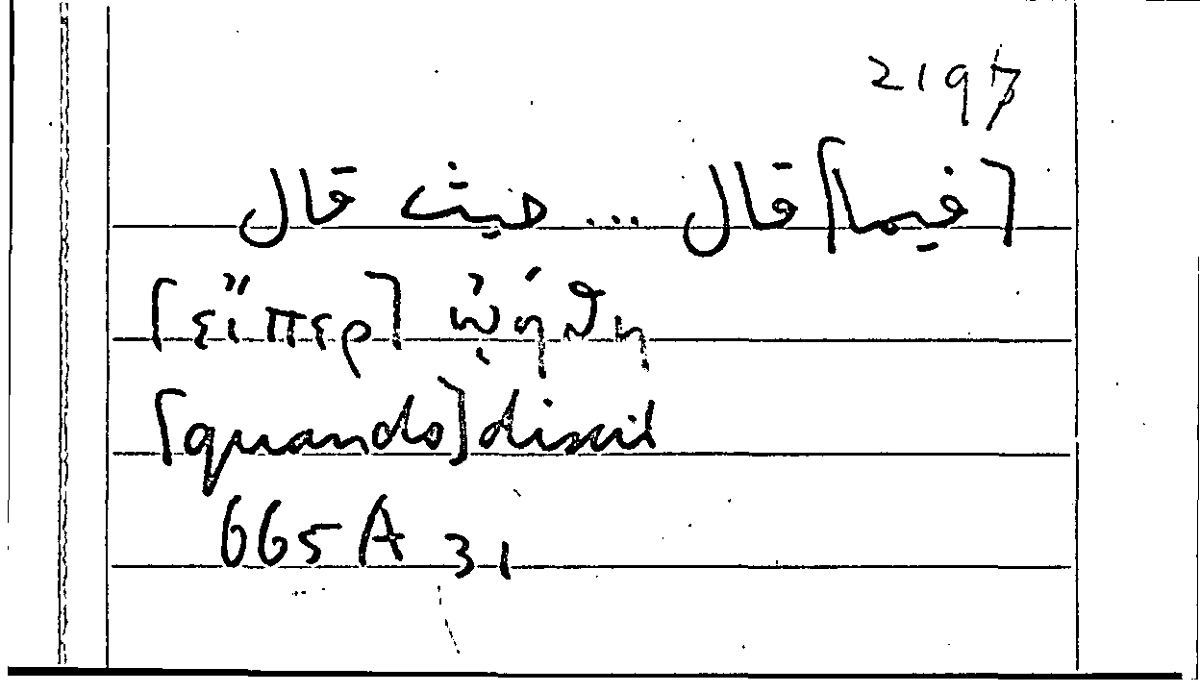 2197
[فيما] قال ... حيث قال
[εἴπερ] ᾠήθη
[quando] dixit
665A 31